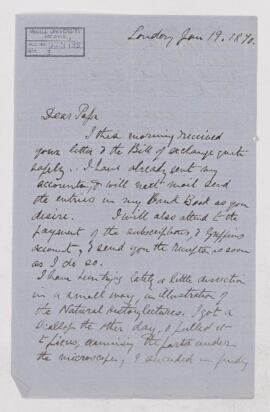 McGILL UNIVERSITY
ARCHIVES
ACC. NO.
REF.
London Jan 19. 1870.
Dear Papa
I this morning received
your letter & the Bill of exchange quite
safely. I have already sent my
accounts, & will next mail send
the entries in my Bank Book as you
desire. I will also attend to the
payment of the subscriptions & Griffins
account, & send you the receipts as soon
as I do so.
I have been trying lately a little dissection
in a small way, in illustration of
the Natural history lectures. I got a
Scallop the other day, & pulled it
to pieces, examining the parts under
the microscope, I succeeded in